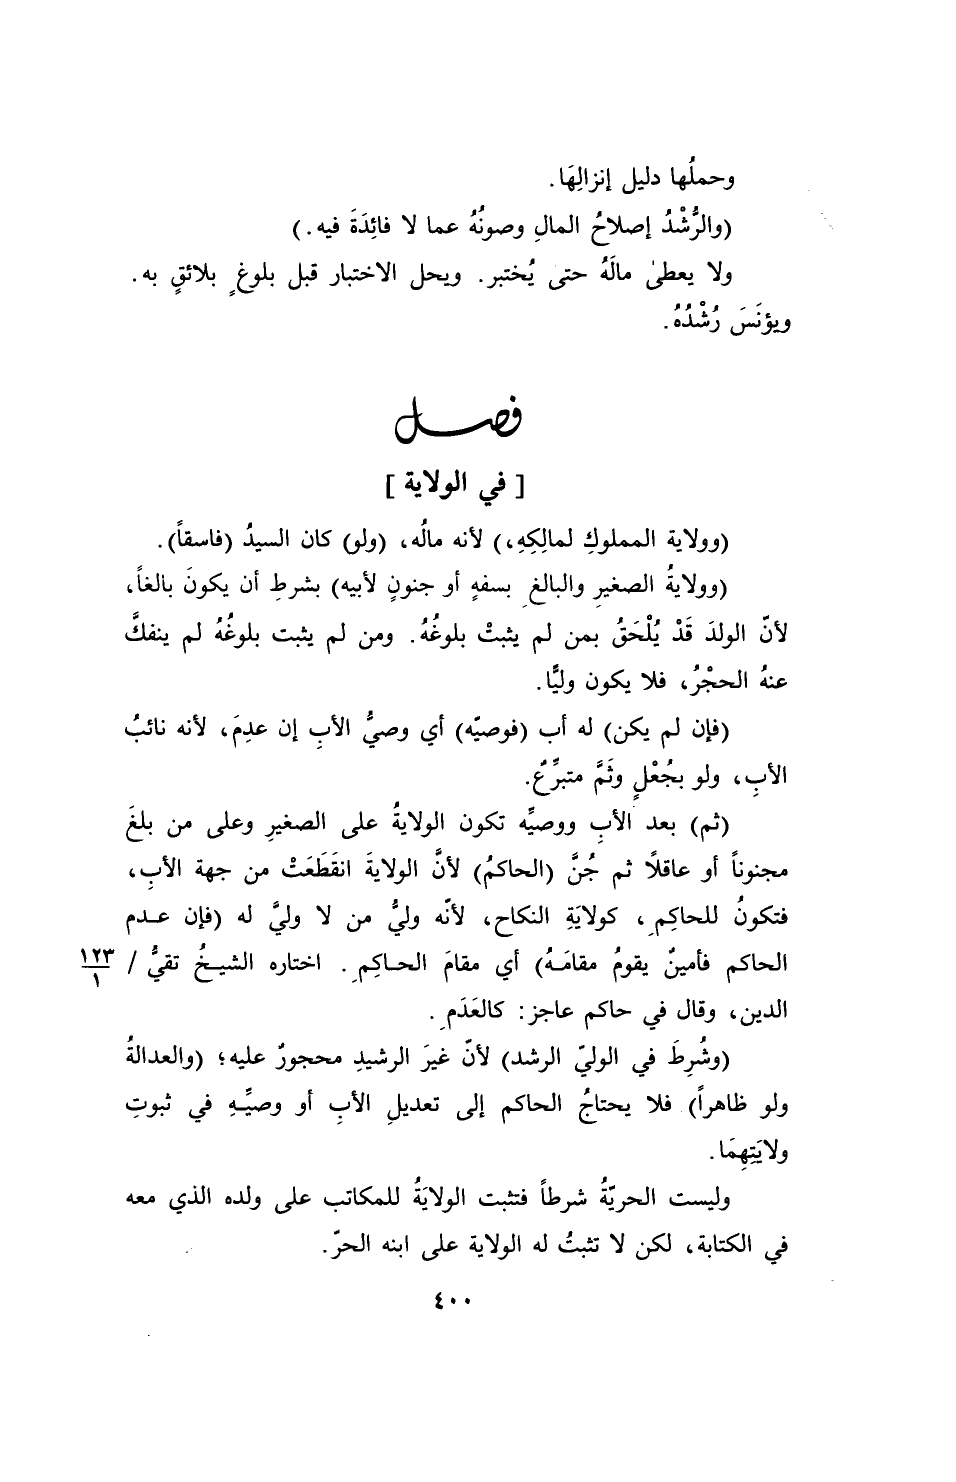 وحملُها دليل إنزالِهَا.
(والرُّشْدُ إصلاحُ المالِ وصونُهُ عما لا فائِدَةَ فيه.)
ولا يعطىٰ مالَهُ حتى يُختبر. ويحل الاختبار قبل بلوغٍ بلائقٍ به.
ويؤنَسَ رُشْدُهُ.
فصل
[ في الولاية ]
(وولاية المملوكِ لمالِكِهِ،) لأنه مالُه، (ولو) كان السيدُ (فاسقاً).
(وولايةُ الصغيرِ والبالغِ بسفهٍ أو جنونٍ لأبيه) بشرطِ أن يكونَ بالغاً،
لأنّ الولدَ قَدْ يُلْحَقُ بمن لم يثبتْ بلوغُهُ. ومن لم يثبت بلوغُهُ لم ينفكَّ
عنهُ الحجْرُ، فلا يكون وليًّا.
(فإن لم يكن) له أب (فوصيّه) أي وصيُّ الأبِ إن عدِمَ، لأنه نائبُ
الأبِ، ولو بجُعْلٍ وثَمَّ متبرِّعٌ.
(ثم) بعد الأبِ ووصيِّه تكون الولايةُ على الصغيرِ وعلى من بلغَ
مجنوناً أو عاقلًا ثم جُنَّ (الحاكمُ) لأنَّ الولايةَ انقَطَعَتْ من جهة الأبِ،
فتكونُ للحاكِمِ، كولايَةِ النكاح، لأنّه وليُّ من لا وليَّ له (فإن عـدم
الحاكم فأمينٌ يقومُ مقامَـهُ) أي مقامَ الحـاكِمِ. اختاره الشيـخُ تقيُّ / ١٢٣/١
الدين، وقال في حاكم عاجز: كالعَدَمِ.
(وشُرِطَ في الوليّ الرشد) لأنّ غيرَ الرشيدِ محجورٌ عليه؛ (والعدالةُ
ولو ظاهراً) فلا يحتاجُ الحاكم إلى تعديلِ الأبِ أو وصيِّـهِ في ثبوتِ
ولايَتِهِمَا.
وليست الحريّةُ شرطاً فتثبت الولايَةُ للمكاتب على ولده الذي معه
في الكتابة، لكن لا تثبتُ له الولاية على ابنه الحرّ.
٤٠٠